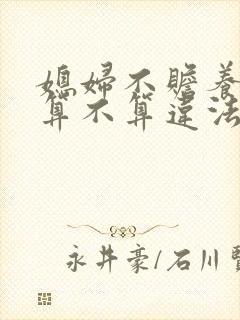 媳婦不贍養
算不算違法
永井豪/石川賢